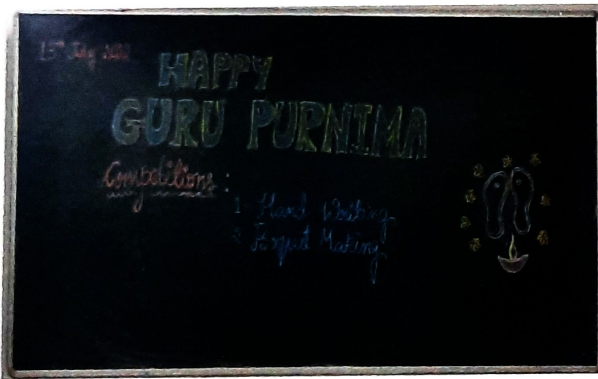 15th July
HAPPY
GURU PURNIMA
Competitions :
1. Hand Writing
2. Making